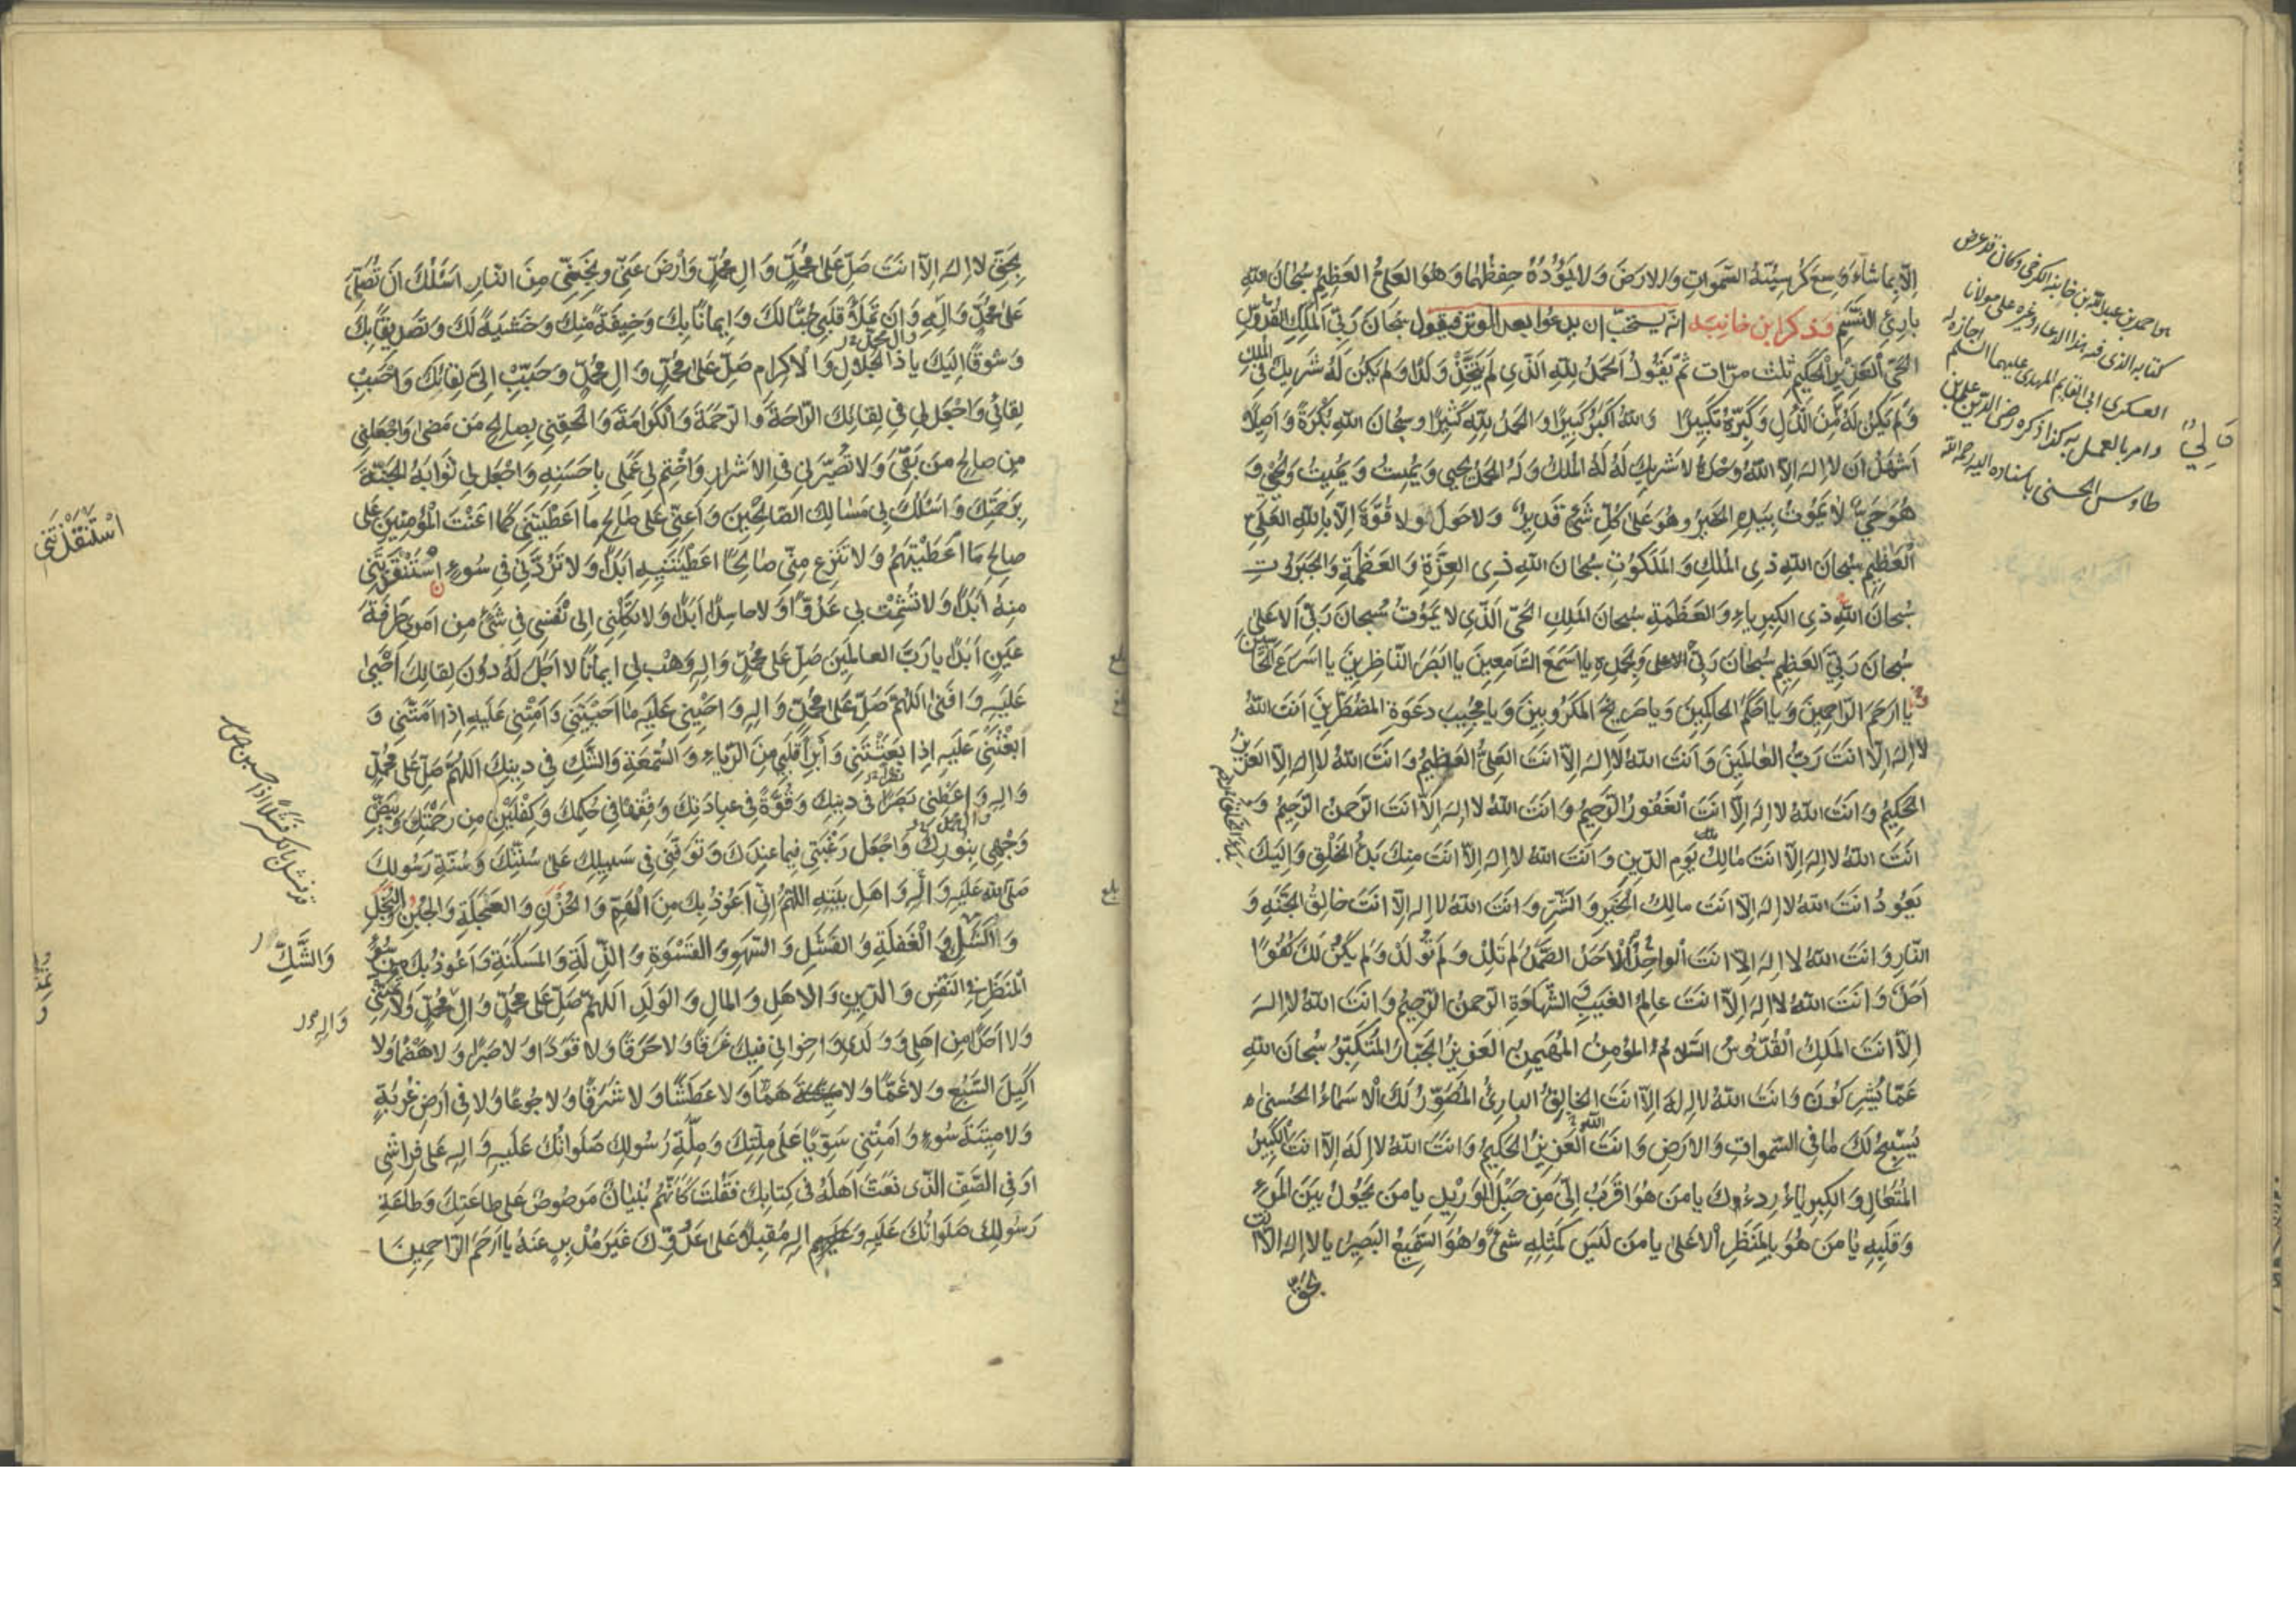 اِلّا بِما شاءَ وَسِعَ كُرْسِيُّهُ السَّمواتِ وَالارْضَ وَلا يَؤُدُهُ حِفْظُهُما وَهُوَ العَلِىُّ العَظيمُ سُبْحانَ اللّهِ
بارِئِ النَّسَمِ وَذكر ابن خانبه انّه يستحبّ ان يدعوا بعد الوتر فيقول سُبْحانَ رَبِّىَ المَلِكِ القُدُّوسِ
العَزيزِ الحَكيمِ ثلث مرّات ثمّ يَقُولُ اَلحَمْدُ لِلّهِ الَّذى لَمْ يَتَّخِذْ وَلَدًا وَلَمْ يَكُنْ لَهُ شَريكٌ فِى المُلْكِ
وَلَمْ يَكُنْ لَهُ وَلِىٌّ مِنَ الذُّلِّ وَكَبِّرْهُ تَكْبيرًا وَاللّهُ اَكْبَرُ كَبيرًا وَالحَمْدُ لِلّهِ كَثيرًا وسُبْحانَ اللّهِ بُكْرَةً وَاَصيلًا
اَشْهَدُ اَنْ لا اِلهَ اِلّا اللّهُ وَحْدَهُ لا شَريكَ لَهُ لَهُ المُلْكُ وَلَهُ الحَمْدُ يُحْيى وَيُميتُ وَيُميتُ وَيُحْيى وَ
هُوَ حَىٌّ لا يَمُوتُ بِيَدِهِ الخَيْرُ وهُوَ عَلى كُلِّ شَىْءٍ قَديرٌ وَلا حَولَ وَلا قُوَّةَ اِلّا بِاللّهِ العَلِىِّ
الْعَظيمِ سُبْحانَ اللّهِ ذِى المُلْكِ وَالمَلَكُوتِ سُبْحانَ اللّهِ ذِى العِزَّةِ وَالعَظَمَةِ وَالجَبَرُوتِ
سُبْحانَ اللّهِ ذِى الكِبْرِياءِ وَالعَظَمَةِ سُبْحانَ المَلِكِ الحَىِّ الَّذى لا يَمُوتُ سُبْحانَ رَبِّىَ الاَعْلى
سُبْحانَ رَبِّىَ العَظيمِ سُبْحانَ رَبِّىَ الاعلى وَبِحَمْدِهِ يا اَسْمَعَ السّامِعينَ يا اَبْصَرَ النّاظِرينَ يا اَسْرَعَ الحاسِبينَ
يا اَرْحَمَ الرّاحِمينَ وَيا اَحْكَمَ الحاكِمينَ وَيا صَريخَ المَكْرُوبينَ وَيا مُجيبَ دَعْوَةِ المُضْطَرّينَ اَنْتَ اللّهُ
لا اِلهَ اِلّا اَنْتَ رَبُّ العالَمينَ وَاَنْتَ اللّهُ لا اِلهَ اِلّا اَنْتَ العَلِىُّ العَظيمُ وَاَنْتَ اللّهُ لا اِلهَ اِلّا العَزيزُ
الحَكيمُ وَاَنْتَ اللّهُ لا اِلهَ اِلّا اَنْتَ الغَفُورُ الرَّحيمُ وَاَنْتَ اللّهُ لا اِلهَ اِلّا اَنْتَ الرَّحْمنُ الرَّحيمُ وَ
اَنْتَ اللّهُ لا اِلهَ اِلّا اَنْتَ مالِكُ يَوْمِ الدّينِ وَاَنْتَ اللّهُ لا اِلهَ اِلّا اَنْتَ مِنْكَ بَدْءُ الخَلْقِ وَاِلَيْكَ
يَعُودُ اَنْتَ اللّهُ لا اِلهَ اِلّا اَنْتَ مالِكُ الخَيْرِ وَالشَّرِّ وَاَنْتَ اللّهُ لا اِلهَ اِلّا اَنْتَ خالِقُ الجَنَّةِ وَ
النّارِ وَاَنْتَ اللّهُ لا اِلهَ اِلّا اَنْتَ الْواحِدُ الْاَحَدُ الصَّمَدُ لَمْ تَلِدْ وَلَمْ تُولَدْ وَلَمْ يَكُنْ لَكَ كُفُوًا
اَحَدٌ وَاَنْتَ اللّهُ لا اِلهَ اِلّا اَنْتَ عالِمُ الغَيْبِ وَالشَّهادَةِ الرَّحْمنُ الرَّحيمُ وَاَنْتَ اللّهُ لا اِلهَ
اِلّا اَنْتَ المَلِكُ الْقُدُّوسُ السَّلامُ المُؤْمِنُ المُهَيْمِنُ العَزيزُ الجَبّارُ المُتَكَبِّرُ سُبْحانَ اللّهِ
عَمّا يُشْرِكُونَ وَاَنْتَ اللّهُ لا اِلهَ اِلّا اَنْتَ الخالِقُ البارِئُ المُصَوِّرُ لَكَ الاَسْماءُ الحُسْنى
يُسَبِّحُ لَكَ ما فِى السَّمواتِ وَالارْضِ وَاَنْتَ العَزيزُ الحَكيمُ وَاَنْتَ اللّهُ لا اِلهَ اِلّا اَنْتَ الكَبيرُ
المُتَعالِ وَالكِبْرِياءُ رِداؤُكَ يا مَنْ هُوَ اَقْرَبُ اِلَىَّ مِنْ حَبْلِ الوَريدِ يا مَنْ يَحُولُ بَيْنَ المَرْءِ
وَقَلْبِهِ يا مَنْ هُوَ بِالمَنْظَرِ الاَعْلى يا مَنْ لَيْسَ كَمِثْلِهِ شَىْءٌ وَهُوَ السَّميعُ البَصيرُ يا لا اِلهَ اِلّا اَنْتَ
بحَقِّ
كتابه الذى فيه هذا الدعاء وغيره على مولانا
العسكرى ابى القايم المهدى عليهما السلم
وامر بالعمل به كذا ذكره رضى الدين على بن
طاوس الحسنى باسناده اليه رحمه الله
بِحَقِّ لا اِلهَ اِلّا اَنْتَ صَلِّ عَلى مُحَمَّدٍ وَالِ مُحَمَّدٍ وَارْضَ عَنّى وَنَجِّنى مِنَ النّارِ اَسْئَلُكَ اَنْ تُصَلِّىَ
عَلى مُحَمَّدٍ وَالِهِ وَاَنْ تَمْلَأَ قَلْبى حُبًّا لَكَ وَايمانًا بِكَ وَخيفَةً مِنْكَ وَخَشْيَةً لَكَ وَتَصْديقًا بِكَ
وَشَوْقًا اِلَيْكَ يا ذَا الجَلالِ وَالْاِكْرامِ صَلِّ عَلى مُحَمَّدٍ وَالِ مُحَمَّدٍ وَحَبِّبْ اِلَىَّ لِقائَكَ وَاَحْبِبْ
لِقائى وَاجْعَلْ لى فى لِقائِكَ الرّاحَةَ وَالرَّحْمَةَ وَالْكَرامَةَ وَاَلْحِقْنى بِصالِحِ مَنْ مَضى وَاجْعَلْنى
مِنْ صالِحِ مَنْ بَقِىَ وَلا تُصَيِّرْنى فِى الاَشْرارِ وَاخْتِمْ لى عَمَلى بِاَحْسَنِهِ وَاجْعَلْ لى ثَوابَهُ الجَنَّةَ
بِرَحْمَتِكَ وَاسْلُكْ بى مَسالِكَ الصّالِحينَ وَاَعِنّى عَلى صالِحِ ما اَعْطَيْتَنى كَما اَعَنْتَ الْمُؤْمِنينَ عَلى
صالِحِ ما اَعْطَيْتَهُمْ وَلا تَنْزِعْ مِنّى صالِحًا اَعْطَيْتَنيهِ اَبَدًا وَلا تَرُدَّنى فى سُوءٍ اسْتَنْقَذْتَنى
مِنْهُ اَبَدًا وَلا تُشْمِتْ بى عَدُوًّا وَلا حاسِدًا اَبَدًا وَلا تَكِلْنى اِلى نَفْسى فى شَىْءٍ مِنْ اَمْرى طَرْفَةَ
عَيْنٍ اَبَدًا يا رَبَّ العالَمينَ صَلِّ عَلى مُحَمَّدٍ وَالِهِ وَهَبْ لى ايمانًا لا اَجَلَ لَهُ دُونَ لِقائِكَ اَحْيى
عَلَيْهِ وَافْنى اللّهُمَّ صَلِّ عَلى مُحَمَّدٍ وَالِهِ وَاَحْيِنى عَلَيْهِ ما اَحْيَيْتَنى وَاَمِتْنى عَلَيْهِ اِذا اَمَتَّنى وَ
ابْعَثْنى عَلَيْهِ اِذا بَعَثْتَنى وَاَبْرِأْ قَلْبى مِنَ الرِّياءِ وَالسُّمْعَةِ وَالشَّكِّ فى دينِكَ اَللّهُمَّ صَلِّ عَلى مُحَمَّدٍ
وَالِهِ وَاَعْطِنى نَصْرًا فى دينِكَ وَقُوَّةً فى عِبادَتِكَ وَفِقْهًا فى حُكْمِكَ وَكِفْلَيْنِ مِنْ رَحْمَتِكَ وَبَيِّضْ
وَجْهى بِنُورِكَ وَاجْعَلْ رَغْبَتى فيما عِنْدَكَ وَتَوَفَّنى فى سَبيلِكَ عَلى سُنَّتِكَ وَسُنَّةِ رَسُولِكَ
صَلَّى اللّهُ عَلَيْهِ وَالِهِ وَاَهْلِ بَيْتِهِ اللّهُمَّ اِنّى اَعُوذُ بِكَ مِنَ الْهَمِّ وَالحُزْنِ وَالعَجَلَةِ وَالجُبْنِ وَالْبُخْلِ
وَالْكَسَلِ وَالْغَفْلَةِ وَالفَشَلِ وَالسَّهْوِ وَالقَسْوَةِ وَالذِّلَّةِ وَالمَسْكَنَةِ وَاَعُوذُ بِكَ مِنْ سُوءِ
الْمَنْظَرِ فِى النَّفْسِ وَالدّينِ وَالاهْلِ وَالمالِ وَالوَلَدِ اَللّهُمَّ صَلِّ عَلى مُحَمَّدٍ وَالِ مُحَمَّدٍ وَلا تُمِتْنى
وَلا اَحَدًا مِنْ اَهْلى وَوَلَدى وَاِخْوانى فيكَ غَرَقًا وَلا حَرَقًا وَلا قَوَدًا وَلا صَبْرًا وَلا هَضْمًا وَلا
اَكيلَ السَّبُعِ وَلا غَمًّا وَلا هَمًّا وَلا عَطَشًا وَلا شَرَقًا وَلا جُوعًا وَلا فى اَرْضِ غُرْبَةٍ
وَلا ميتَةَ سُوءٍ وَاَمِتْنى سَوِيًّا عَلى مِلَّتِكَ وَمِلَّةِ رَسُولِكَ صَلَواتُكَ عَلَيْهِ وَالِهِ عَلى فِراشى
اَوْ فِى الصَّفِّ الَّذى نَعَتَّ اَهْلَهُ فى كِتابِكَ فَقُلْتَ كَاَنَّهُمْ بُنْيانٌ مَرْصُوصٌ عَلى طاعَتِكَ وَطاعَةِ
رَسُولِكَ صَلَواتُكَ عَلَيْهِ وَالِهِ مُقْبِلًا عَلى عَدُوِّكَ غَيْرَ مُدْبِرٍ عَنْهُ يا اَرْحَمَ الرّاحِمينَ
اسْتَنْقَذْتَنى
وَالشَّكِّ
وَالِهِ